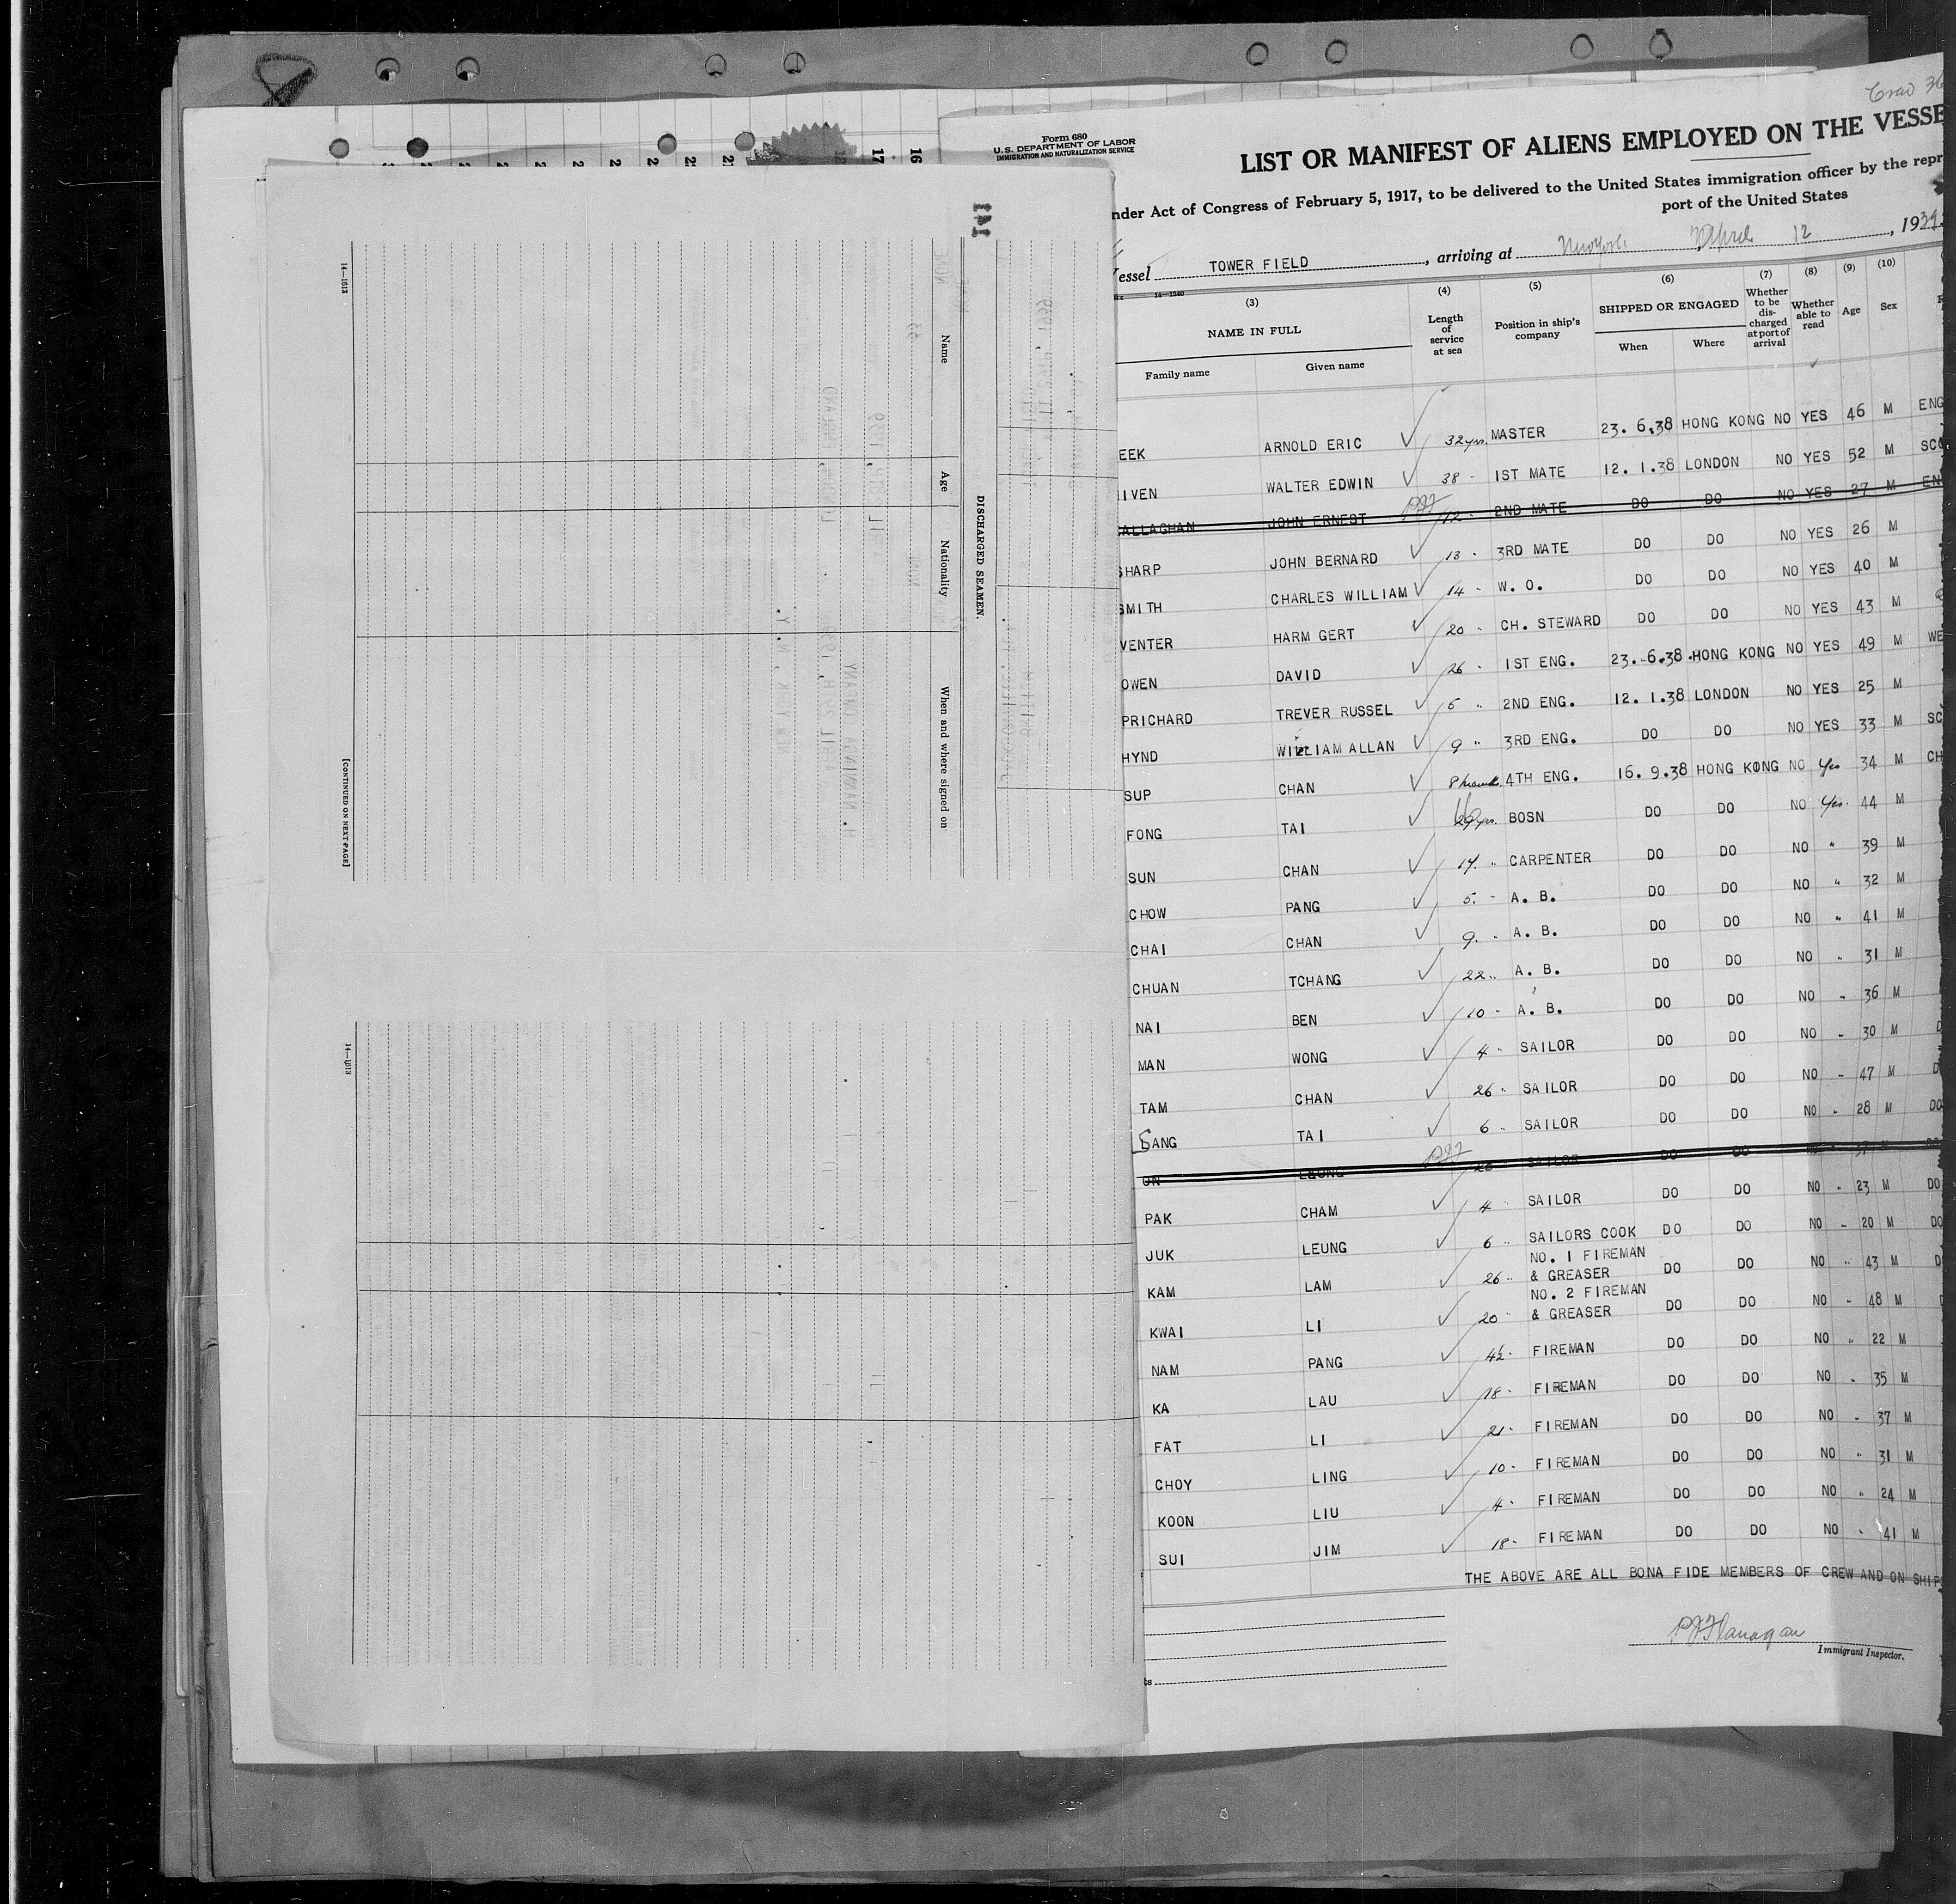 Form 680
U.S. DEPARTMENT OF LABOR
IMMIGRATION AND NATURALIZATION SERVICE
LIST OR MANIFEST OF ALIENS EMPLOYED ON THE VESSE
nder Act of Congress of February 5, 1917, to be delivered to the United States immigration officer by the repr
port of the United States
essel TOWER FIELD, arriving at New York April 12, 1939
14—1240
(3) (4) (5) (6) (7) (8) (9) (10)
NAME IN FULL Length of service at sea Position in ship's company SHIPPED OR ENGAGED Whether to be discharged at port of arrival Whether able to read Age Sex
Family name Given name When Where
EEK ARNOLD ERIC 32 yrs. MASTER 23. 6.38 HONG KONG NO YES 46 M ENG
IVEN WALTER EDWIN 38 - 1ST MATE 12. 1.38 LONDON NO YES 52 M SCO
ALLAGHAN JOHN ERNEST 12 - 2ND MATE DO DO NO YES 27 M EN
SHARP JOHN BERNARD 13 - 3RD MATE DO DO NO YES 26 M
SMITH CHARLES WILLIAM 14 - W. O. DO DO NO YES 40 M
VENTER HARM GERT 20 - CH. STEWARD DO DO NO YES 43 M
OWEN DAVID 26 - 1ST ENG. 23. 6.38 HONG KONG NO YES 49 M WE
PRICHARD TREVER RUSSEL 5 " 2ND ENG. 12. 1.38 LONDON NO YES 25 M
HYND WILLIAM ALLAN 9 " 3RD ENG. DO DO NO YES 33 M SC
SUP CHAN 8 months 4TH ENG. 16. 9.38 HONG KONG NO Yes 34 M CH
FONG TAI yrs. BOSN DO DO NO Yes 44 M
SUN CHAN 14 " CARPENTER DO DO NO " 39 M
CHOW PANG 5 - A. B. DO DO NO " 32 M
CHAI CHAN 9 - A. B. DO DO NO " 41 M
CHUAN TCHANG 22 " A. B. DO DO NO " 31 M
NAI BEN 10 - A. B. DO DO NO " 36 M
MAN WONG 4 - SAILOR DO DO NO " 30 M
TAM CHAN 26 " SAILOR DO DO NO " 47 M
SANG TAI 6 - SAILOR DO DO NO " 28 M DO
ON LEUNG 20 SAILOR DO DO
PAK CHAM 4 - SAILOR DO DO NO " 23 M DO
JUK LEUNG 6 " SAILORS COOK DO DO NO " 20 M DO
KAM LAM 26 " NO. 1 FIREMAN & GREASER DO DO NO " 43 M
KWAI LI 20 - NO. 2 FIREMAN & GREASER DO DO NO " 48 M
NAM PANG 4½ - FIREMAN DO DO NO " 22 M
KA LAU 18 - FIREMAN DO DO NO " 35 M
FAT LI 21 - FIREMAN DO DO NO " 37 M
CHOY LING 10 - FIREMAN DO DO NO " 31 M
KOON LIU 4 - FIREMAN DO DO NO " 24 M
SUI JIM 18 - FIREMAN DO DO NO " 41 M
THE ABOVE ARE ALL BONA FIDE MEMBERS OF CREW AND ON SHIP
PJ Flanagan
Immigrant Inspector.
141
DISCHARGED SEAMEN.
Name Age Nationality When and where signed on
14—1613
[CONTINUED ON NEXT PAGE]
14—1613
17
16